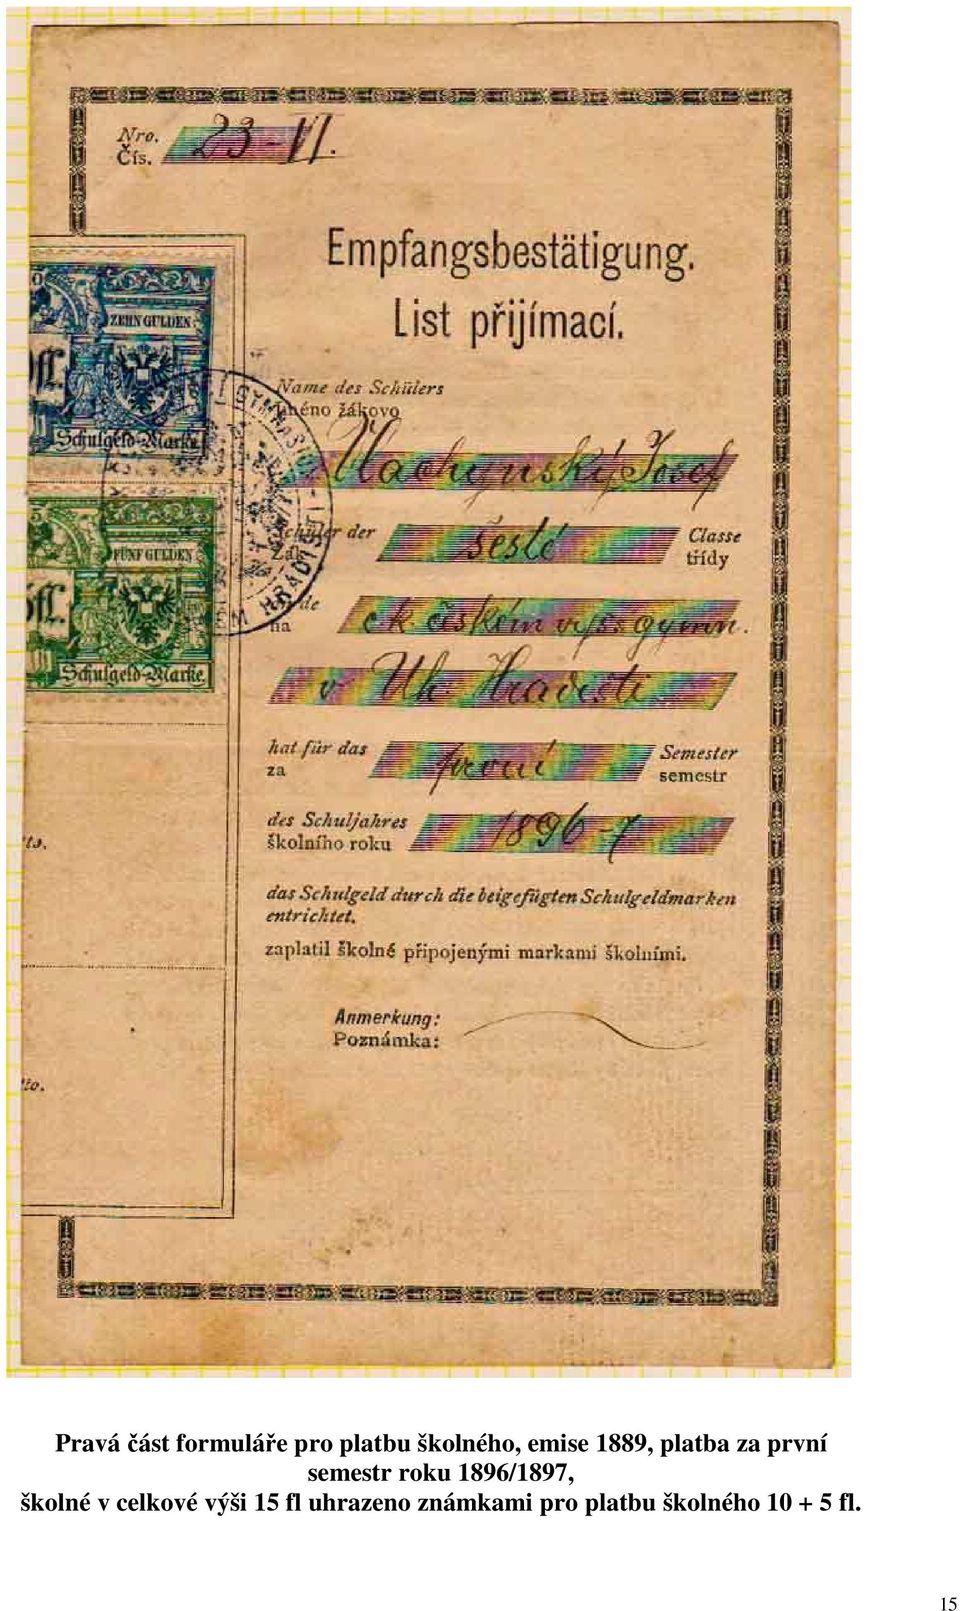 Nro.
Čís. 23-VI.
Empfangsbestätigung.
List přijímací.
ZEHN GULDEN
fl.
Schulgeld-Marke.
FÜNF GULDEN
5 fl.
Schulgeld-Marke.
GYMNASI
M HRADIŠTI
Name des Schülers
Jméno žákovo
Josef
Schüler der
Žák šesté Classe
třídy
na c k českém vyšš gymn.
v Uh. Hradišti
hat für das
za první Semester
semestr
des Schuljahres
školního roku 1896-7
das Schulgeld durch die beigefügten Schulgeldmarken
entrichtet.
zaplatil školné připojenými markami školními.
Anmerkung:
Poznámka:
Pravá část formuláře pro platbu školného, emise 1889, platba za první
semestr roku 1896/1897,
školné v celkové výši 15 fl uhrazeno známkami pro platbu školného 10 + 5 fl.
15